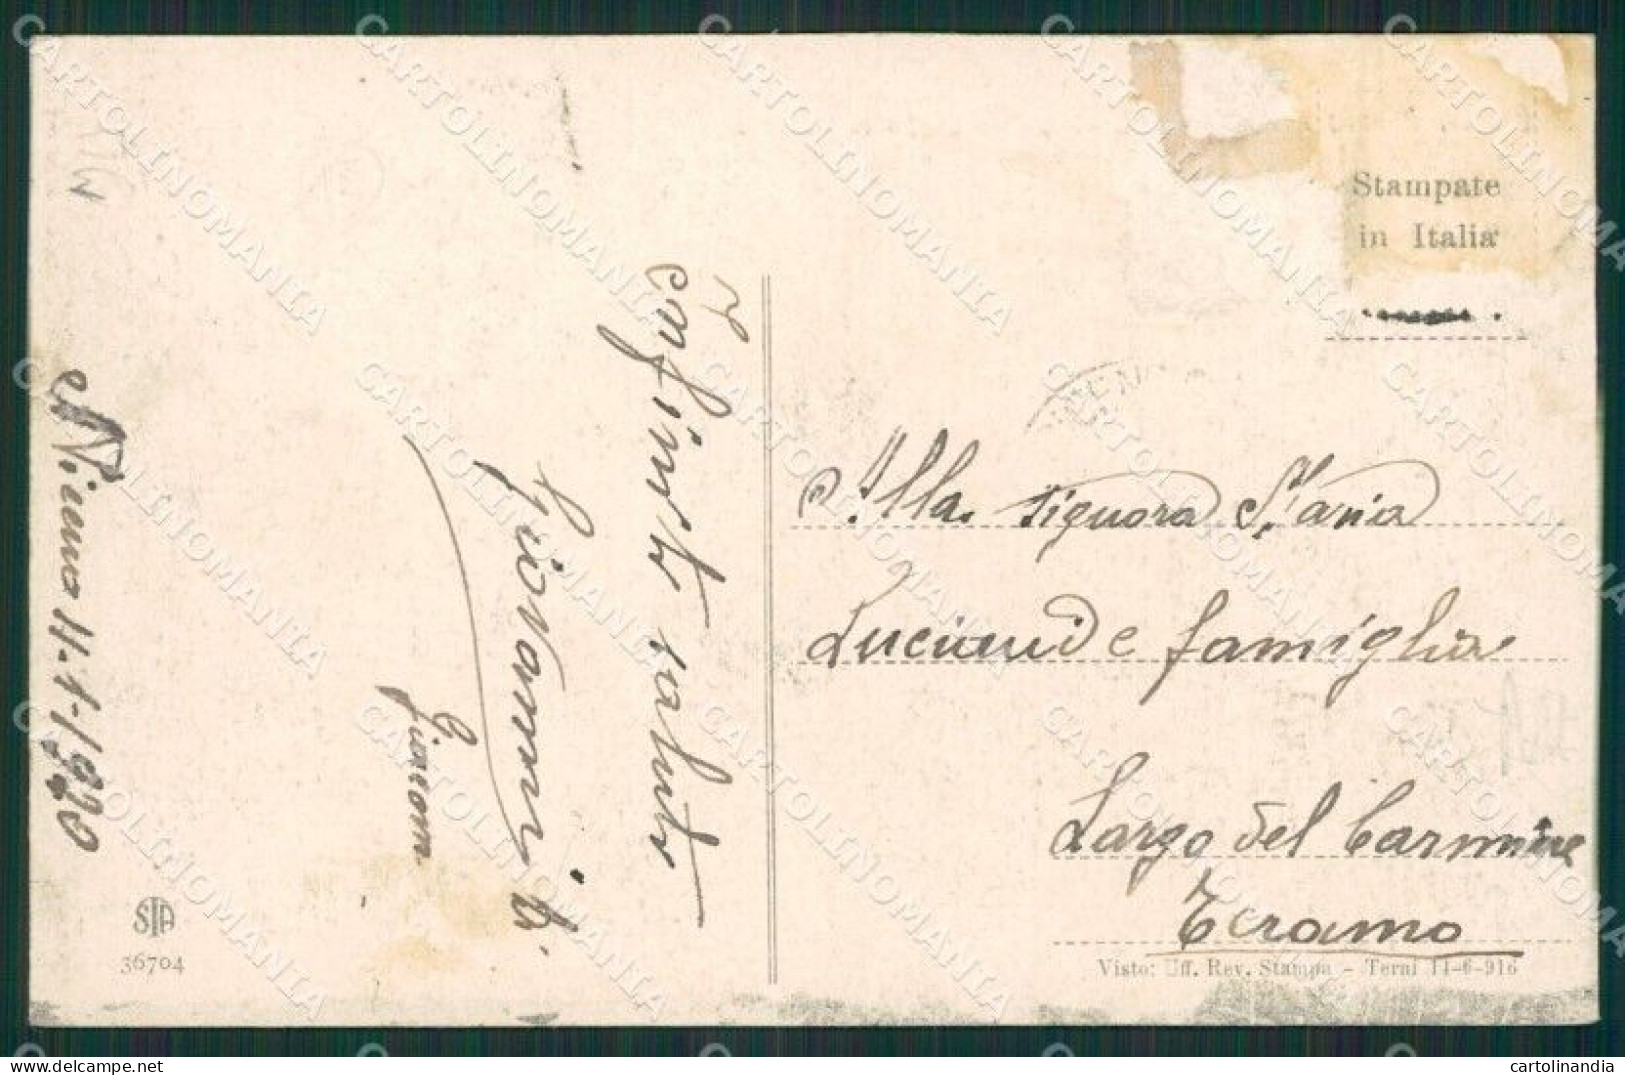 Stampate
in Italia
Alla signora Maria
Luciani e famiglia
Largo del Carmine
Teramo
Visto: Uff. Rev. Stampa - Terni 11-6-916
saluti
Giovanni
Giacom.
11-1-1920
STA
36704
CARTOLINOMANIA
cartolinandia